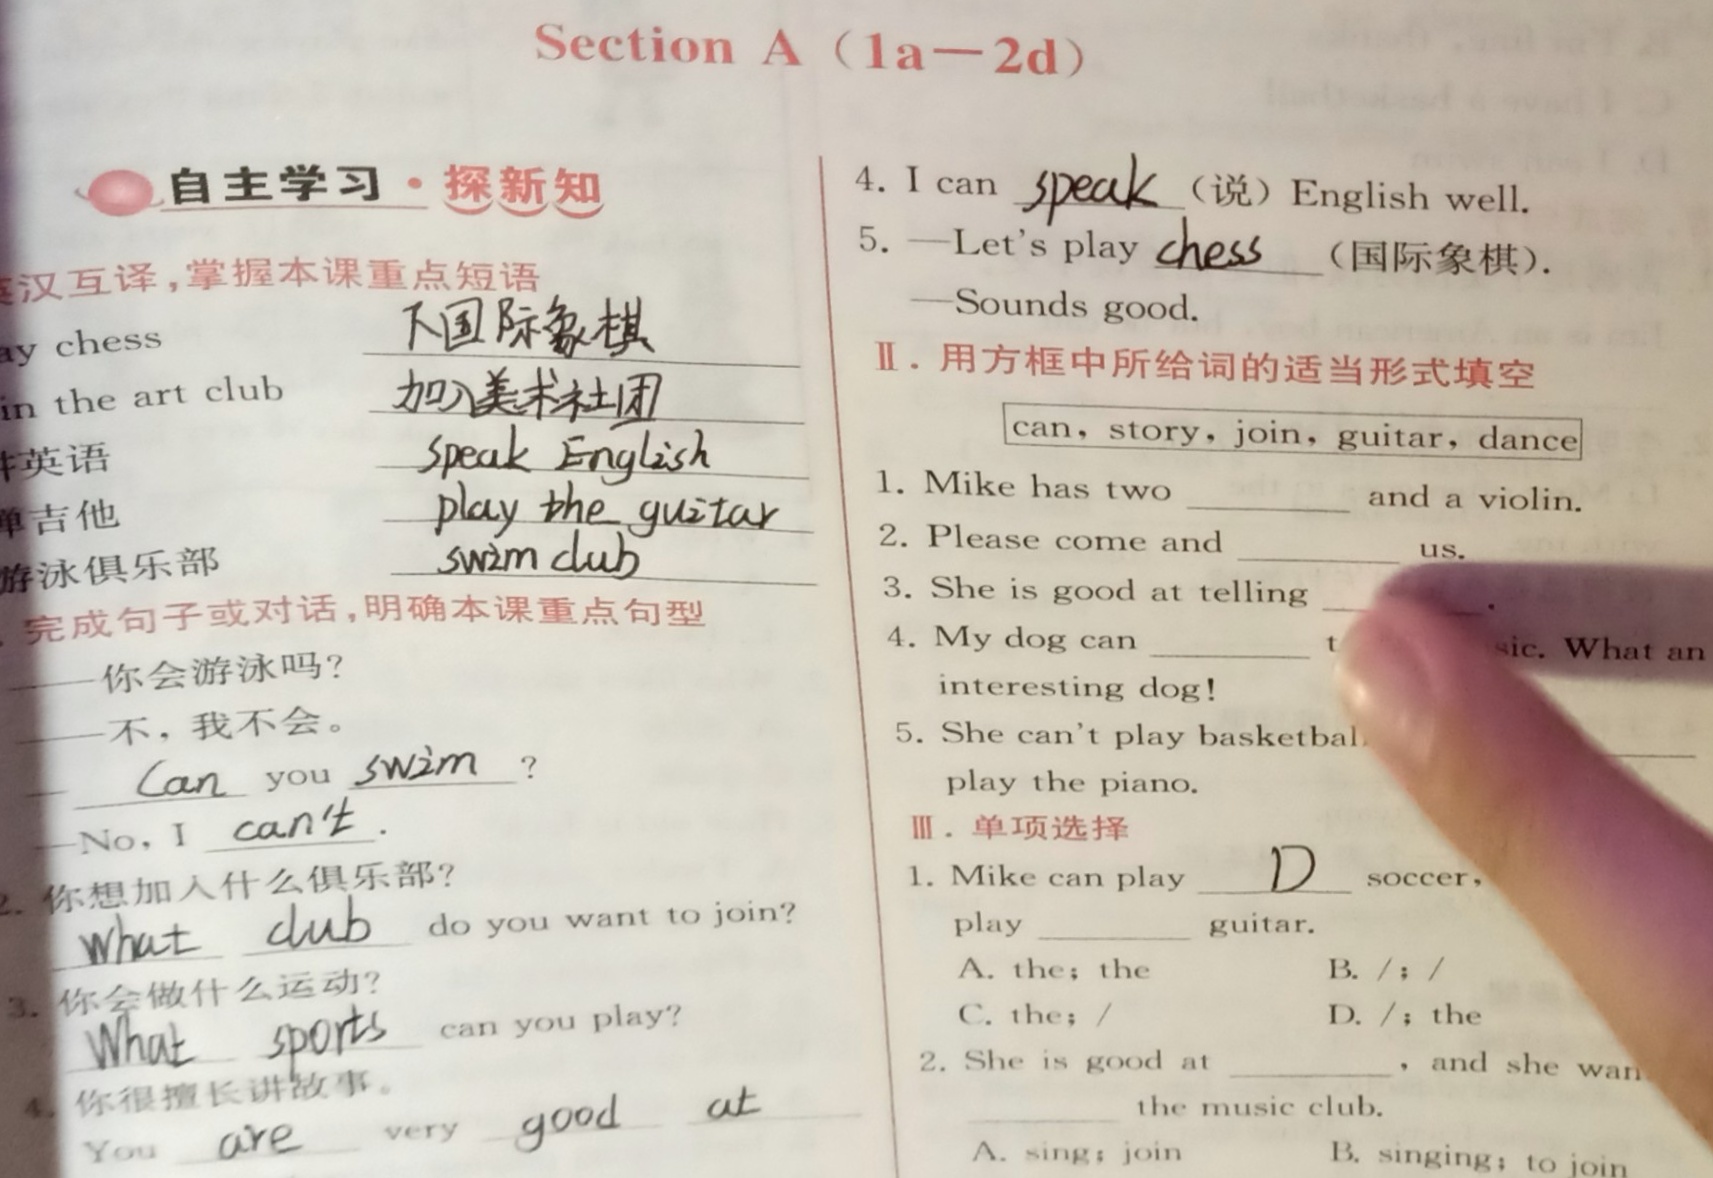 Section A (1a—2d)
自主学习·探新知
汉互译,掌握本课重点短语
chess 下国际象棋
in the art club 加入美术社团
英语 speak English
弹吉他 play the guitar
游泳俱乐部 swim club
完成句子或对话,明确本课重点句型
——你会游泳吗?
——不,我不会。
— Can you swim ?
—No, I can't .
2. 你想加入什么俱乐部?
What club do you want to join?
3. 你会做什么运动?
What sports can you play?
4. 你很擅长讲故事。
You are very good at
4. I can speak (说) English well.
5. —Let's play chess (国际象棋).
—Sounds good.
Ⅱ. 用方框中所给词的适当形式填空
can, story, join, guitar, dance
1. Mike has two ________ and a violin.
2. Please come and ________ us.
3. She is good at telling ________.
4. My dog can ________ What an
interesting dog!
5. She can't play ________
play the piano.
Ⅲ. 单项选择
1. Mike can play D soccer,
play ________ guitar.
A. the; the B. /; /
C. the; / D. /; the
2. She is good at ________, and she
________ the music club.
A. sing; join B. singing; to join